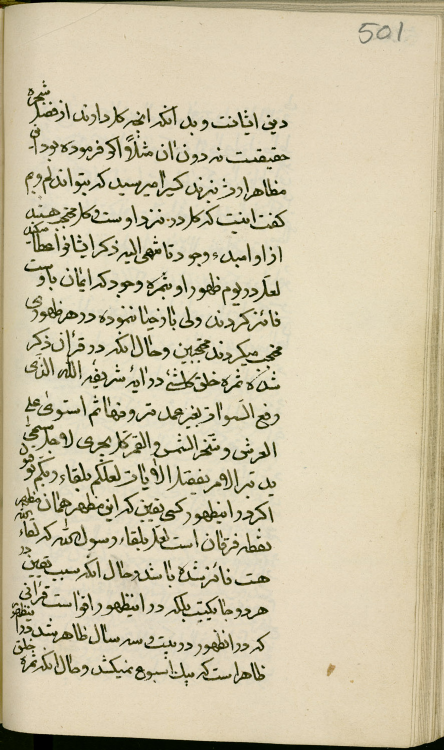 501
دینی ایشانست و بدانکه انچه کل دارند از فضل شجره
حقیقت نه دون ان مثلا اکر فرموده بود ان
مظاهر
کفت اینست که کل در نزد اوست و کل محتجب هستند
از او امید وجود تا منتهی الیه ذکر ایشانرا عطا میکند
لعل در یوم ظهور او ثمره وجود که ایمان باوست
فائز کردند ولی باز حیا ننموده در هر ظهوری
محتجب میکردند محتجبین و حال انکه در قران ذکر
شده که ثمره خلق کلشیء در ایه شریفه الله الذی
رفع السموات بغیر عمد ترونها ثم استوی علی
العرش و سخر الشمس و القمر کل یجری لاجل مسمی
یدبر الامر یفصل الایات لعلکم بلقاء ربکم توقنون
اکر در انظهور کسی یقین کند این مظهر همان مظهر
نقطه فرقان است لعل بلقاء رسول الله که لقاء الله
هست فائز شده باشد و حال انکه سبب یقین در
هر دو جا یکیست بلکه در اینظهور اقوی است قرانی
که در انظهور در بیست و سه سال ظاهر شد در اینظهور
ظاهر است که بیک اسبوع نمیکشد و حال انکه ثمره خلق